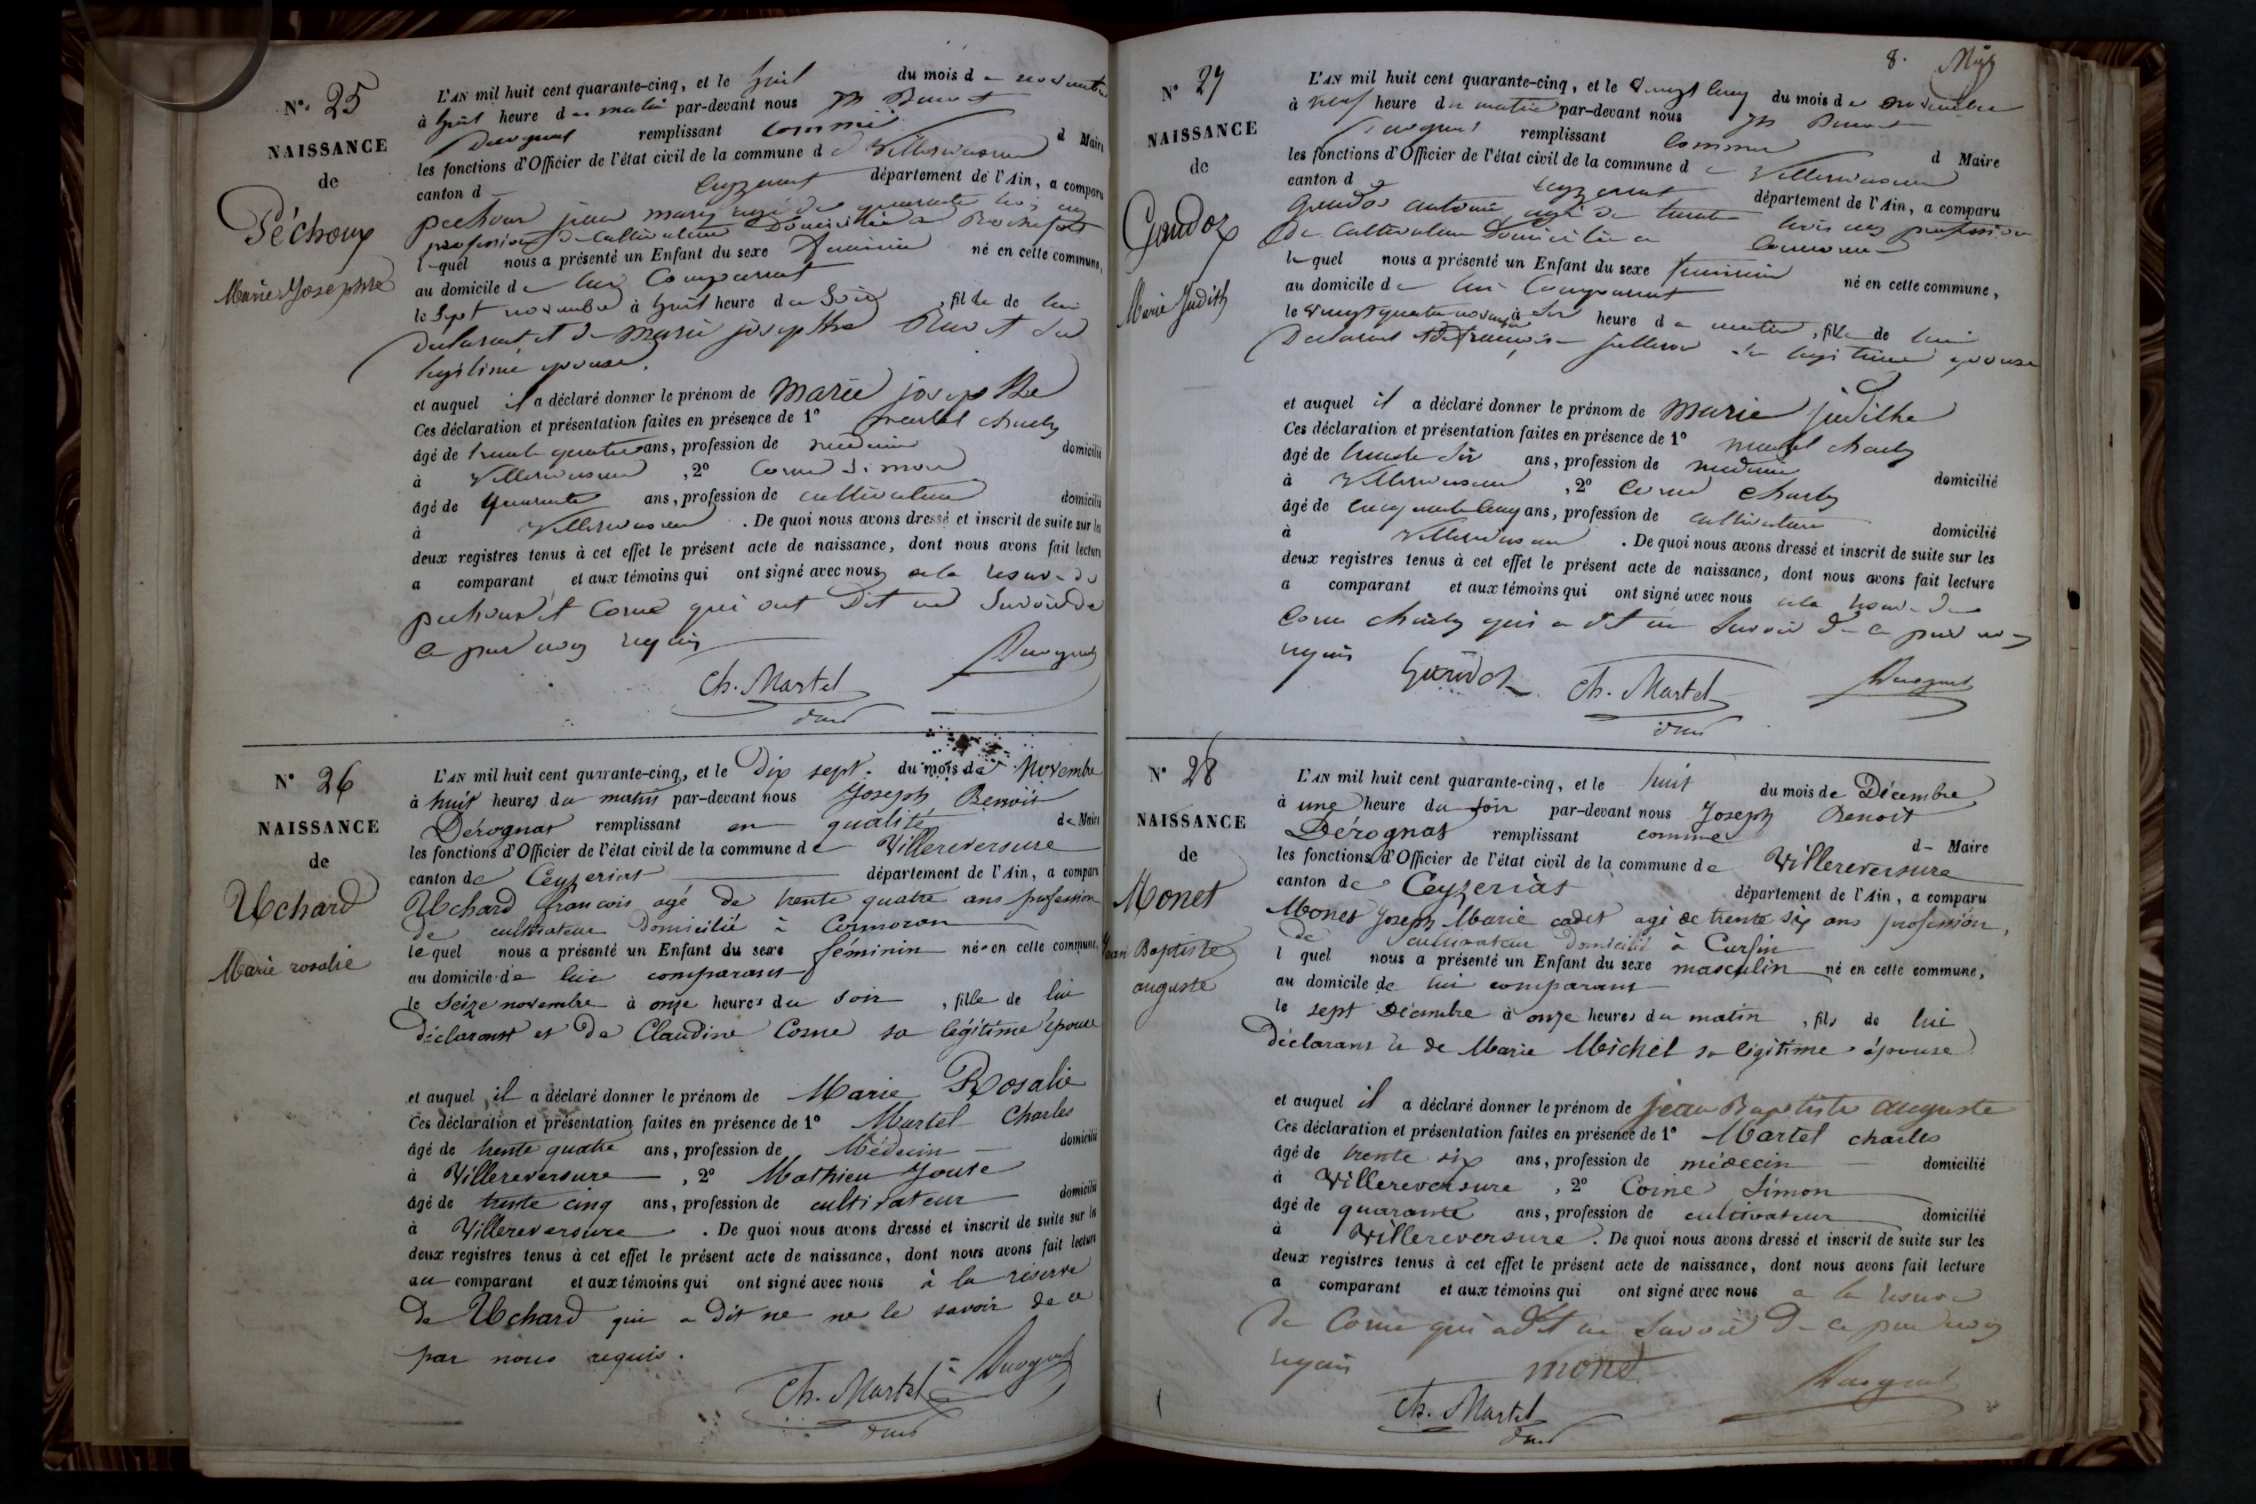 Nº 25
NAISSANCE
de
Péchoux
Marie Josephte
L'AN mil huit cent quarante-cinq, et le huit du mois de novembre
à huit heure du matin par-devant nous Jh Benoit
Derognat remplissant comme d Maire
les fonctions d'Officier de l'état civil de la commune d Villereversure
canton d Ceyzeriat département de l'Ain, a comparu
pechoux jean marie agé de quarante trois ans
profession de cultivateur Domicilié a Rochefort
l quel nous a présenté un Enfant du sexe feminin né en cette commune,
au domicile de lui Comparant
le Sept novembre à huit heure du Soir, fille de lui
declarant et de marie josephte Benoit sa
legitime epouse.
et auquel il a déclaré donner le prénom de marie josephte
Ces déclaration et présentation faites en présence de 1º martel charles
âgé de trente quatre ans, profession de medecin domicilié
à Villereversure, 2º Corne Simon
âgé de quarante ans, profession de cultivateur domicilié
à Villereversure. De quoi nous avons dressé et inscrit de suite sur les
deux registres tenus à cet effet le présent acte de naissance, dont nous avons fait lecture
a comparant et aux témoins qui ont signé avec nous a la reserve de
pechoux et Corne qui ont dit ne Savoir de
ce par nous requis
Ch. Martel
Derognat
Nº 26
NAISSANCE
de
Uchard
Marie rosalie
L'AN mil huit cent quarante-cinq, et le Dix sept. du mois de Novembre
à huit heures du matin par-devant nous Joseph Benoit
Dérognat remplissant en qualité de Maire
les fonctions d'Officier de l'état civil de la commune de Villereversure
canton de Ceyzeriat département de l'Ain, a comparu
Uchard francois agé de trente quatre ans profession
de cultivateur Domicilié à Cormoron
lequel nous a présenté un Enfant du sexe féminin né en cette commune,
au domicile de lui comparant
le Seize novembre à onze heures du soir, fille de lui
déclarant et de Claudine Corne sa légitime épouse
et auquel il a déclaré donner le prénom de Marie Rosalie
Ces déclaration et présentation faites en présence de 1º Martel Charles
âgé de trente quatre ans, profession de Médecin domicilié
à Villereversure, 2º Mathieu
âgé de trente cinq ans, profession de cultivateur domicilié
à Villereversure. De quoi nous avons dressé et inscrit de suite sur les
deux registres tenus à cet effet le présent acte de naissance, dont nous avons fait lecture
au comparant et aux témoins qui ont signé avec nous à la réserve
de Uchard qui a dit ne ne le savoir de ce
par nous requis.
Ch. Martel
Derognat
8.
Nº 27
NAISSANCE
de
Gaudoz
Marie Judith
L'AN mil huit cent quarante-cinq, et le vingt cinq du mois de novembre
à neuf heure du matin par-devant nous Jh Benoit
Derognat remplissant Comme d Maire
les fonctions d'Officier de l'état civil de la commune d Villereversure
canton d Ceyzeriat département de l'Ain, a comparu
antoine agé de trente trois ans profession
de Cultivateur Domicilié a
le quel nous a présenté un Enfant du sexe feminin né en cette commune,
au domicile de lui Comparant
le vingt quatre novembre à Six heure du matin, fille de lui
Declarant et de francoise sa legitime epouse
et auquel il a déclaré donner le prénom de marie judithe
Ces déclaration et présentation faites en présence de 1º martel charles
âgé de trente Six ans, profession de medecin domicilié
à Villereversure, 2º Corne Charles
âgé de cinquante cinq ans, profession de cultivateur domicilié
à Villereversure. De quoi nous avons dressé et inscrit de suite sur les
deux registres tenus à cet effet le présent acte de naissance, dont nous avons fait lecture
a comparant et aux témoins qui ont signé avec nous a la reserve de
Corne charles qui a dit ne Savoir de ce par nous
requis
Ch. Martel
Derognat
Nº 28
NAISSANCE
de
Monet
Jean Baptiste
auguste
L'AN mil huit cent quarante-cinq, et le huit du mois de Décembre
à une heure du soir par-devant nous Joseph Benoit
Dérognat remplissant comme d- Maire
les fonctions d'Officier de l'état civil de la commune de Villereversure
canton de Ceyzeriat département de l'Ain, a comparu
Monet Joseph Marie cadet agé de trente six ans profession,
de cultivateur domicilié à Cursin
l quel nous a présenté un Enfant du sexe masculin né en cette commune,
au domicile de lui comparant
le sept Décembre à onze heures du matin, fils de lui
Déclarant et de Marie Michel sa légitime épouse
et auquel il a déclaré donner le prénom de jean Baptiste auguste
Ces déclaration et présentation faites en présence de 1º Martel charles
âgé de trente six ans, profession de médecin domicilié
à Villereversure, 2º Corne Simon
âgé de quarante ans, profession de cultivateur domicilié
à Villereversure. De quoi nous avons dressé et inscrit de suite sur les
deux registres tenus à cet effet le présent acte de naissance, dont nous avons fait lecture
a comparant et aux témoins qui ont signé avec nous a la reserve
de Corne qui a dit ne Savoir de ce par nous
requis
monet
Ch. Martel
Derognat